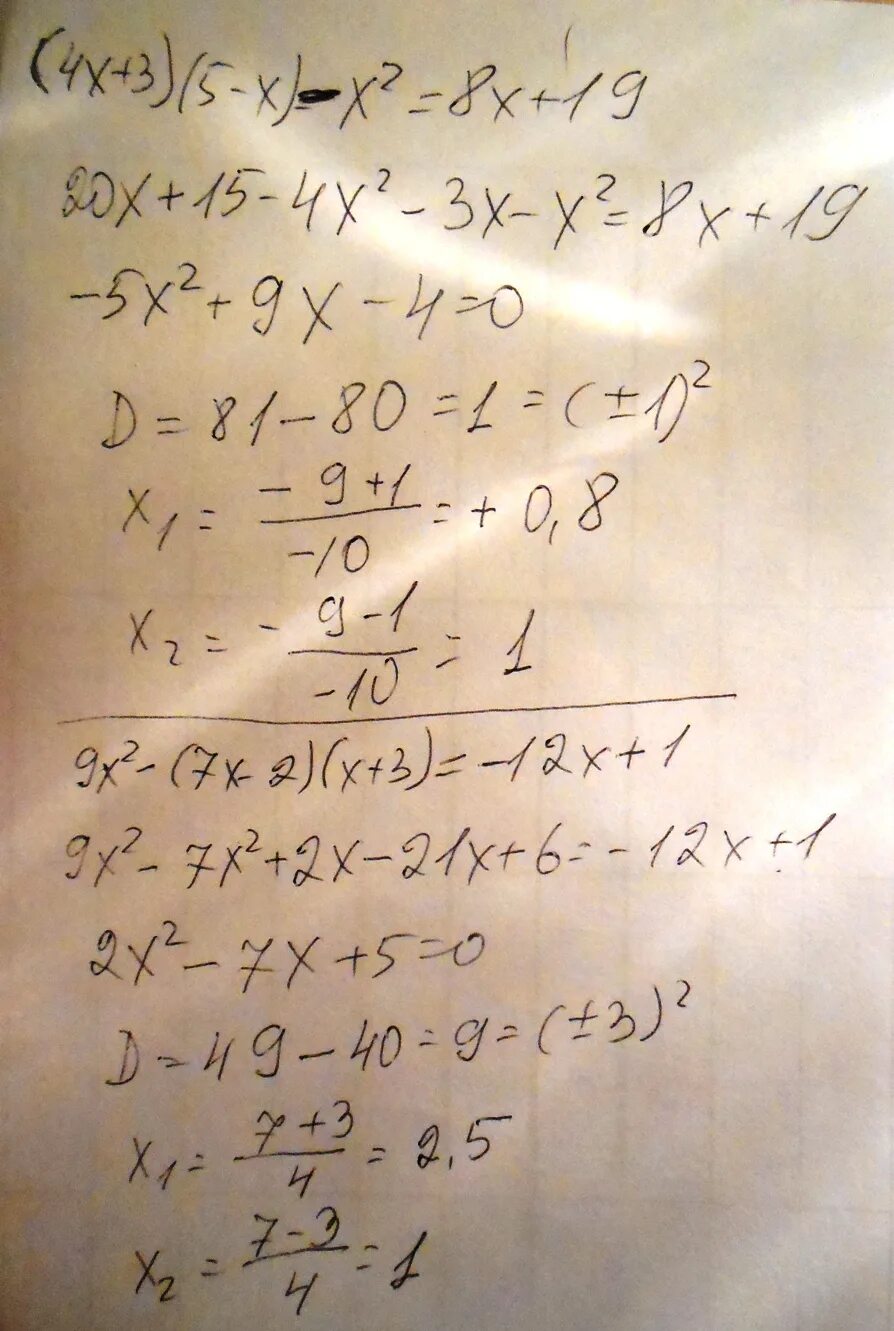 (4x+3)(5-x)-x²=8x+19
20x+15-4x²-3x-x²=8x+19
-5x²+9x-4=0
D=81-80=1=(±1)²
x₁=(-9+1)/(-10)=+0,8
x₂=(-9-1)/(-10)=1
9x²-(7x-2)(x+3)=-12x+1
9x²-7x²+2x-21x+6=-12x+1
2x²-7x+5=0
D=49-40=9=(±3)²
x₁=(7+3)/4=2,5
x₂=(7-3)/4=1